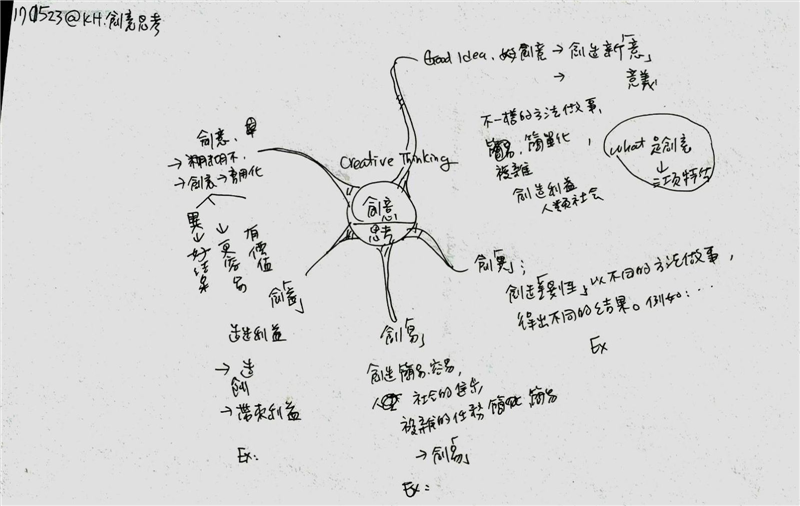 170523@KH.創意思考
Good Idea. 好創意 → 創造新「意」
→ 意義
不一樣的方法做事,
簡易、簡單化,
複雜
創造利益
人類社會
What 是創意
↓
三項特性
創意、
→ 創意 → 商用化
異 → 好結果
↓ 更容易
有價值
Creative Thinking
創意
思考
創「異」;
創造「差異性」以不同的方法做事,
得出不同的結果。例如:…
Ex
創「益」
造利益
→ 造
創
→ 帶來利益
Ex:
創「易」
創造簡易、容易,
社會的
複雜的任務 簡化 簡易
→ 創「易」
Ex: